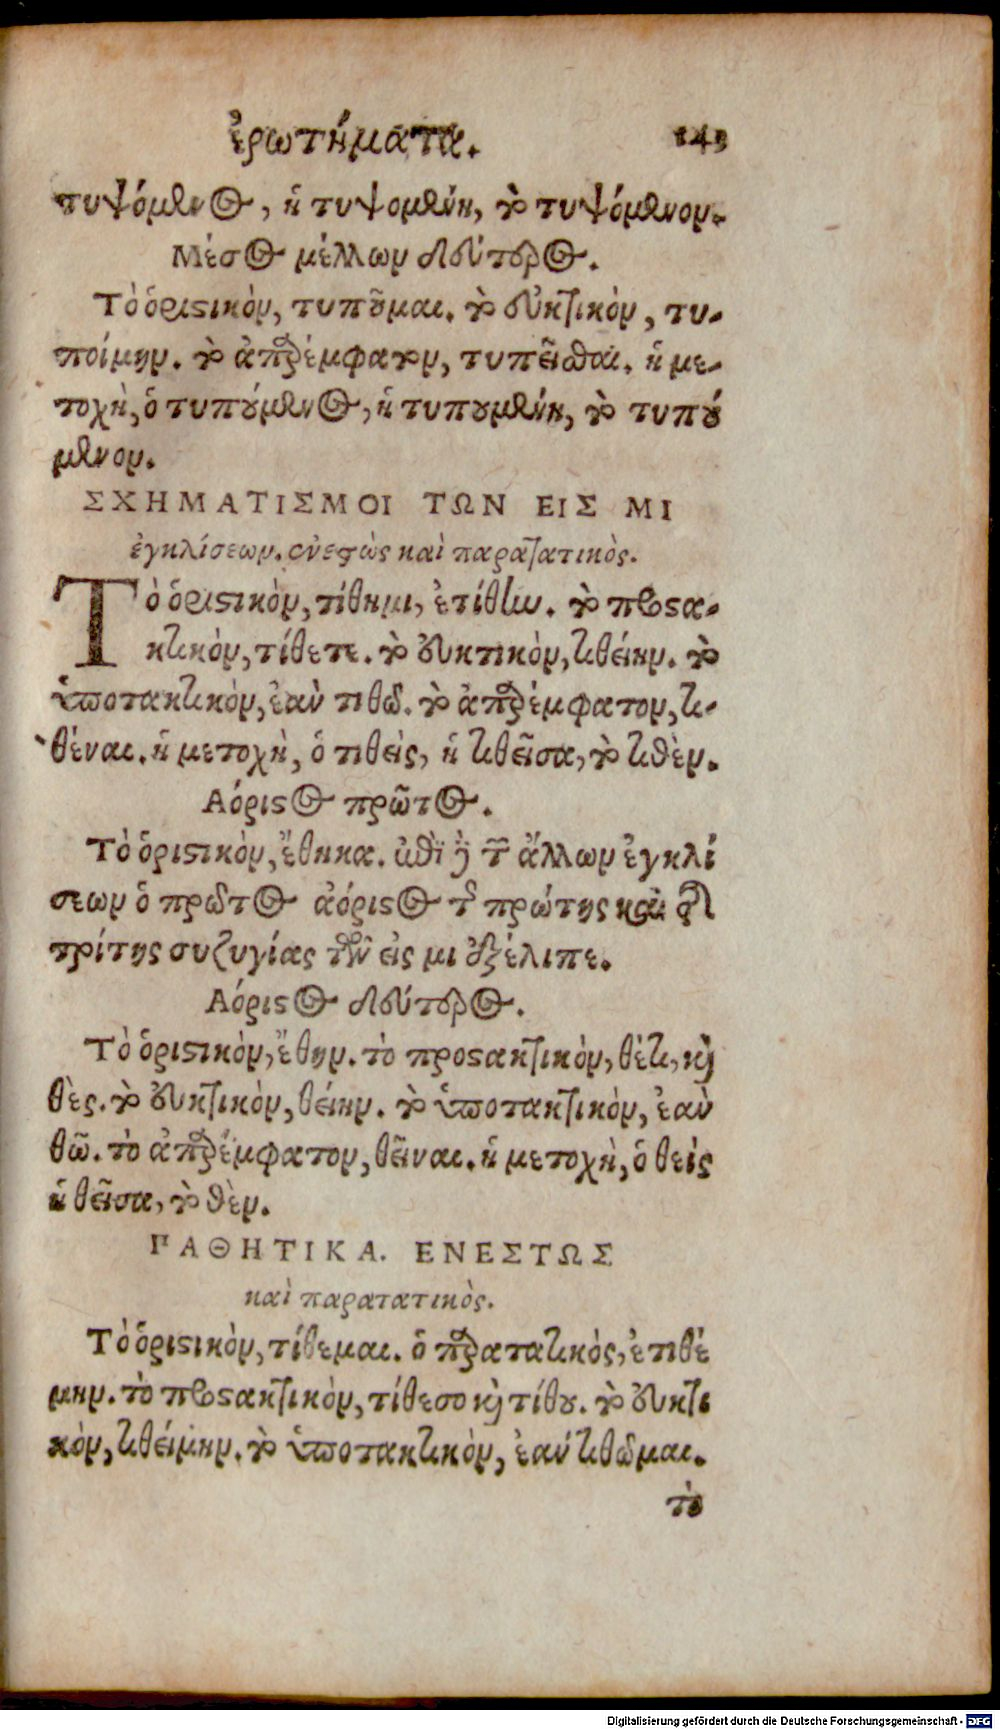 ἐρωτήματα. 145
τυψόμενος, ἡ τυψομένη, τὸ τυψόμενον.
Μέσος μέλλων δεύτερος.
Τὸ ὁριστικὸν, τυποῦμαι. τὸ εὐκτικὸν, τυ-
ποίμην. τὸ ἀπαρέμφατον, τυπεῖσθαι. ἡ με-
τοχὴ, ὁ τυπούμενος, ἡ τυπουμένη, τὸ τυπού
μενον.
ΣΧΗΜΑΤΙΣΜΟΙ ΤΩΝ ΕΙΣ ΜΙ
ἐγκλίσεων. ἐνεστὼς καὶ παρατατικὸς.
Τὸ ὁριστικὸν, τίθημι, ἐτίθην. τὸ προστα-
κτικὸν, τίθετε. τὸ εὐκτικὸν, τιθείην. τὸ
ὑποτακτικὸν, ἐὰν τιθῶ. τὸ ἀπαρέμφατον, τι-
θέναι. ἡ μετοχὴ, ὁ τιθεὶς, ἡ τιθεῖσα, τὸ τιθὲν.
Αόριστος πρῶτος.
Τὸ ὁριστικὸν, ἔθηκα. ἐπὶ γὰρ τῶν ἄλλων ἐγκλί
σεων ὁ πρῶτος ἀόριστος τῆς πρώτης καὶ τῆς
τρίτης συζυγίας τῶν εἰς μι ἐξέλιπε.
Αόριστος δεύτερος.
Τὸ ὁριστικὸν, ἔθην. τὸ προστακτικὸν, θέτι, καὶ
θὲς. τὸ εὐκτικὸν, θείην. τὸ ὑποτακτικὸν, ἐὰν
θῶ. τὸ ἀπαρέμφατον, θεῖναι. ἡ μετοχὴ, ὁ θεὶς
ἡ θεῖσα, τὸ θὲν.
ΠΑΘΗΤΙΚΑ. ΕΝΕΣΤΩΣ
καὶ παρατατικὸς.
Τὸ ὁριστικὸν, τίθεμαι. ὁ παρατατικὸς, ἐτιθέ
μην. τὸ προστακτικὸν, τίθεσο καὶ τίθου. τὸ εὐκτι
κὸν, τιθείμην. τὸ ὑποτακτικὸν, ἐὰν τιθῶμαι.
τὸ
Digitalisierung gefördert durch die Deutsche Forschungsgemeinschaft - DFG